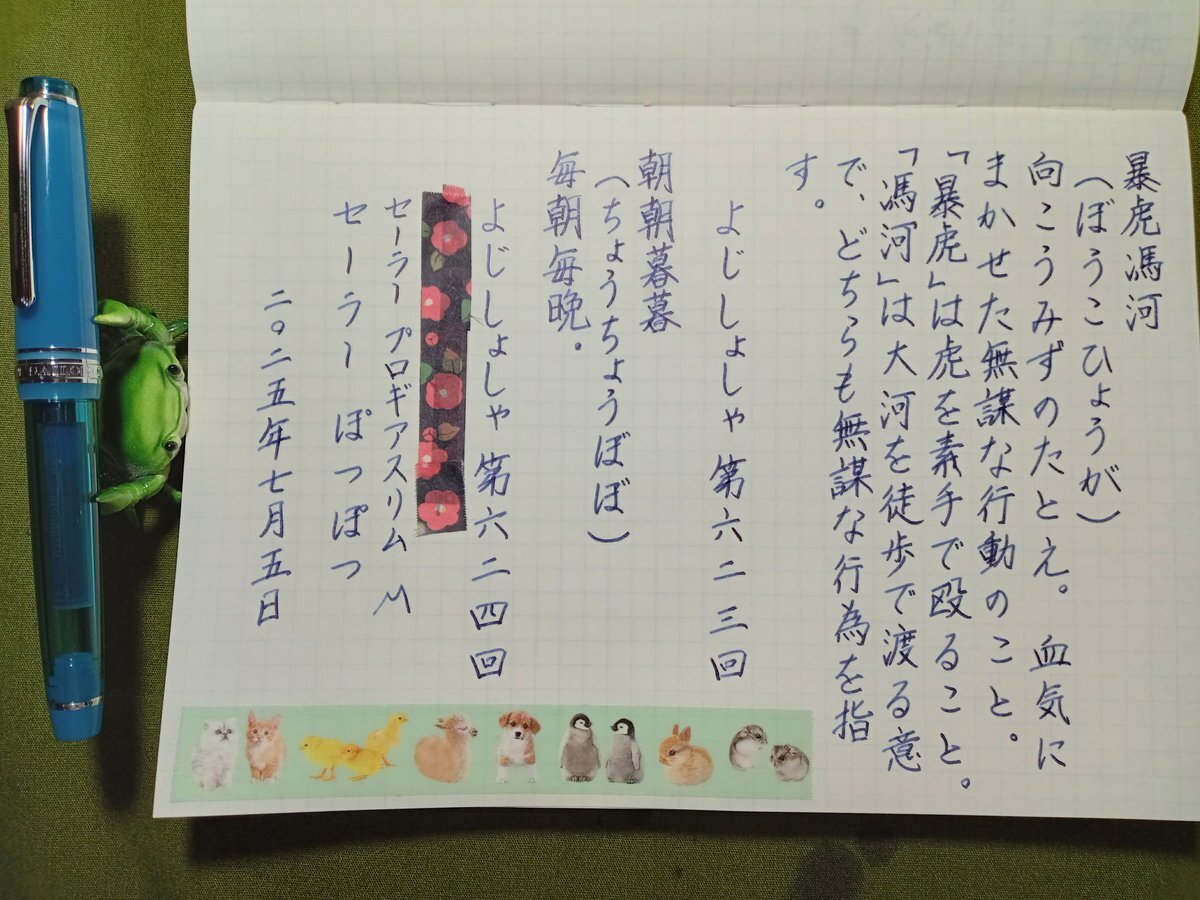 暴虎馮河
(ぼうこひょうが)
向こうみずのたとえ。血気に
まかせた無謀な行動のこと。
「暴虎」は虎を素手で殴ること。
「馮河」は大河を徒歩で渡る意
で、どちらも無謀な行為を指
す。
よじしょしゃ 第六二三回
朝朝暮暮
(ちょうちょうぼぼ)
毎朝毎晩。
よじしょしゃ 第六二四回
セーラー プロギアスリム M
セーラー ぽつぽつ
二〇二五年七月五日